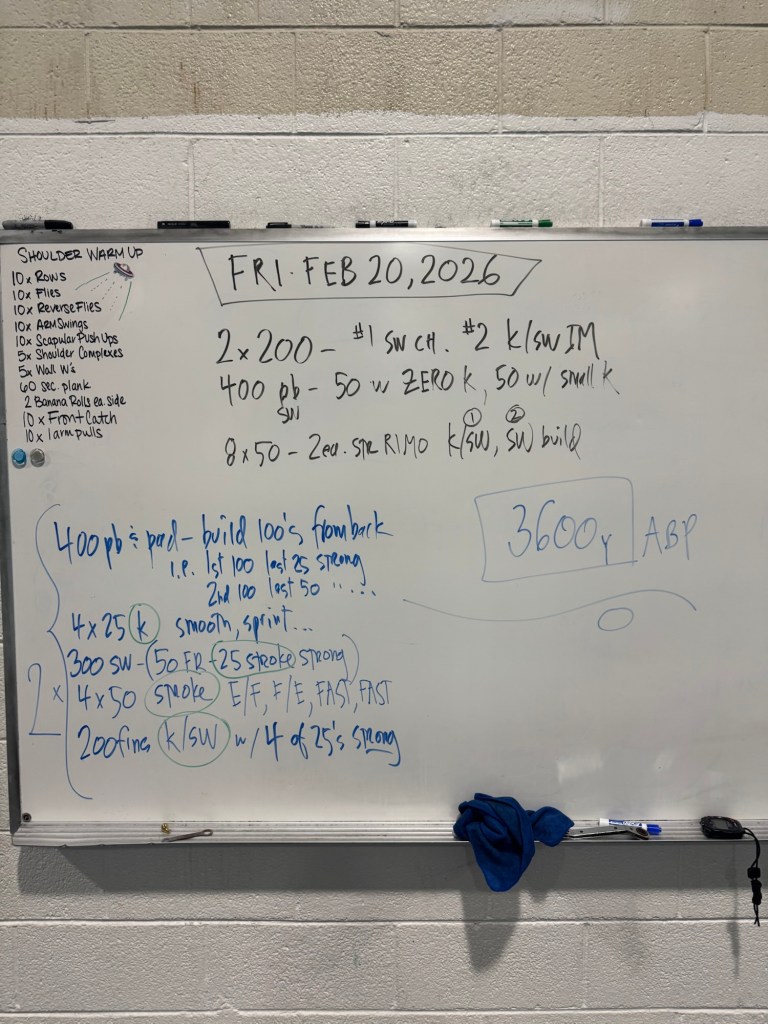 SHOULDER WARM UP
10x Rows
10x Flies
10x Reverse Flies
10x Arm Swings
10x Scapular Push Ups
5x Shoulder Complexes
5x Wall W's
60 sec. plank
2 Banana Rolls ea. side
10x Front Catch
10x 1 arm pulls
FRI. FEB 20, 2026
2x200 - #1 SW CH. #2 K/SW IM
400 pb - 50 w ZERO K, 50 w/ small K
SW
① ②
8x50 - 2ea. STR RIMO K/SW, SW build
3600y ABP
2x
400 pb & pad - build 100's from back
i.e. 1st 100 last 25 strong
2nd 100 last 50 " " ...
4x25 k smooth, sprint...
300 SW - (50 FR - 25 stroke strong)
4x50 stroke E/F, F/E, FAST, FAST
200 fins k/sw w/ 4 of 25's strong